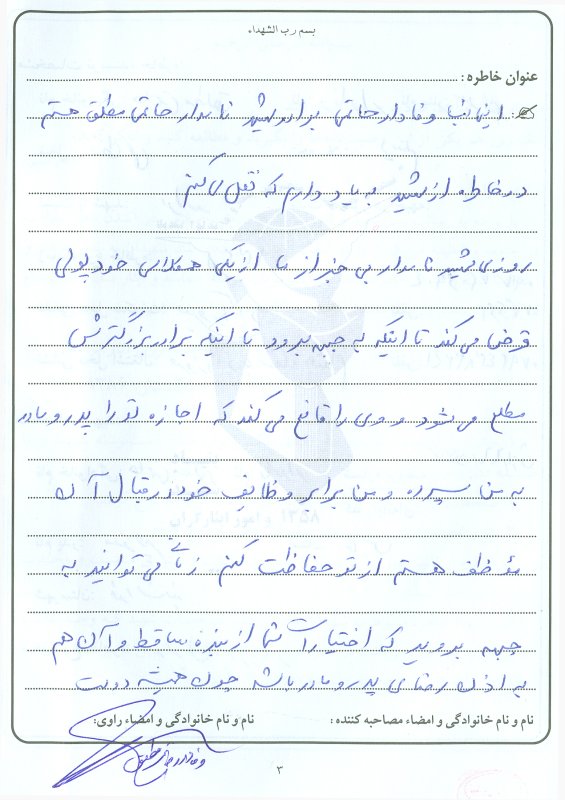 بسم رب الشهداء
عنوان خاطره :
اینجانب وفادار حاتمی برادر شهید نامدار حاتمی مطلق هستم
در خاطره از شهید به یاد دارم که نقل می کنم
روزی شهید نامدار بی خبر از ما از یکی همکلاسی خود پولی
قرض می کند تا اینکه به جبهه برود تا اینکه برادر بزرگترش
مطلع می شود و وی را قانع می کند که اجازه تو را پدر و مادر
به من سپرده و من برابر وظایف خود در قبال آن
موظف هستم از تو حفاظت کنم زمانی می توانید به
جبهه بروید که اختیارات شما از بنده ساقط و آن هم
به اذن رضای پدر و مادر باشد چون همیشه دوست
نام و نام خانوادگی و امضاء مصاحبه کننده :
نام و نام خانوادگی و امضاء راوی:
وفادار حاتمی مطلق
۳